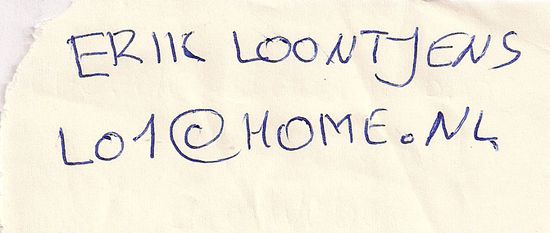 ERIK LOONTJENS
LO1@HOME.NL